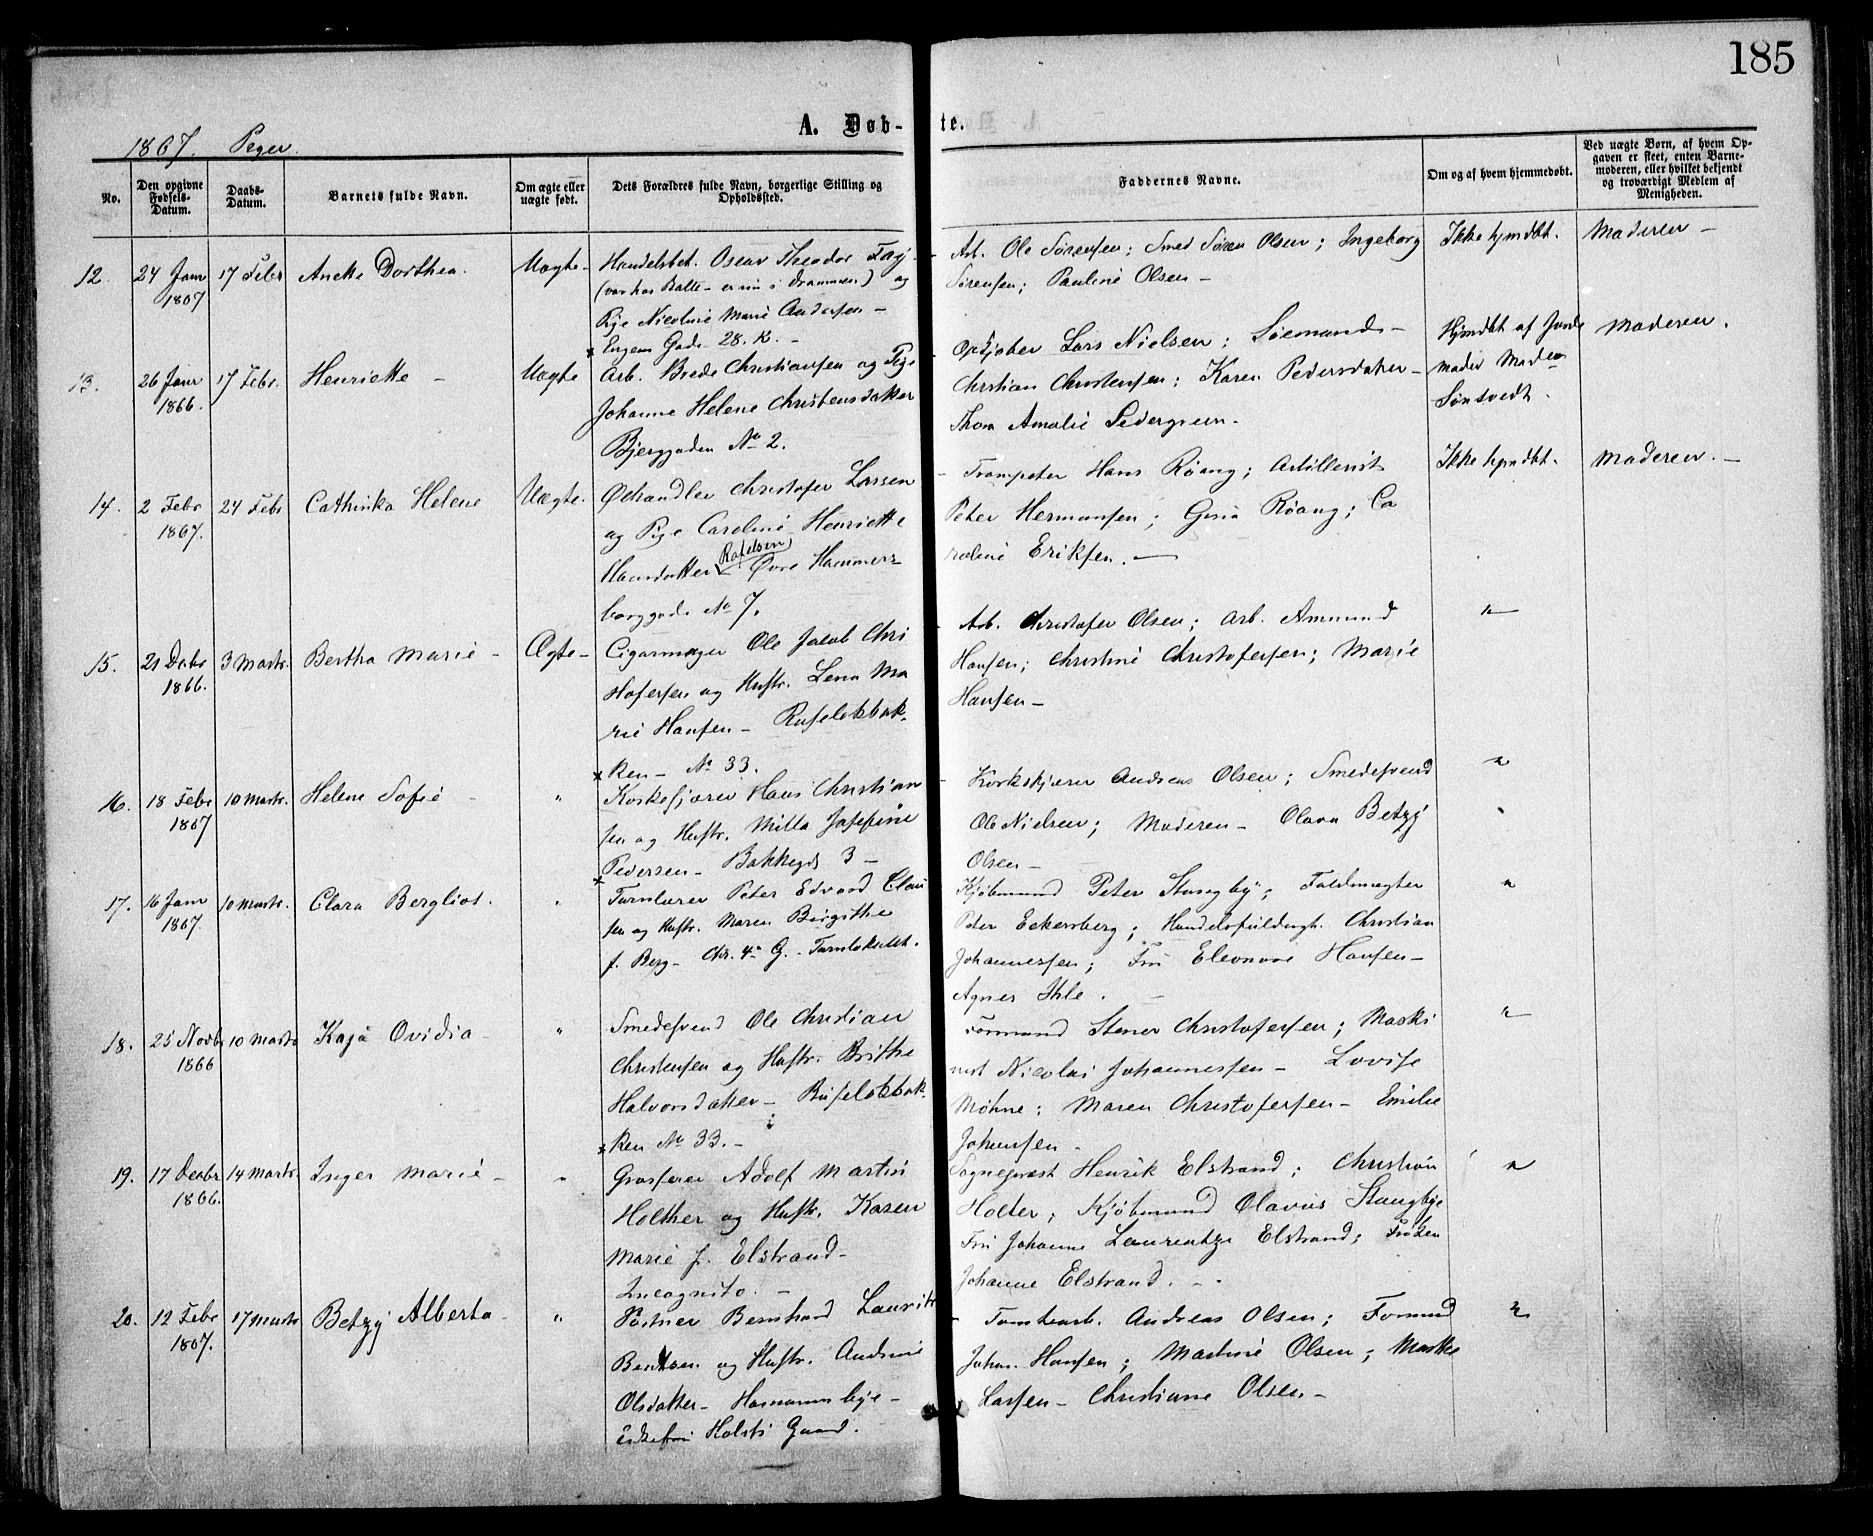 185
A. Døb-te.
1867. Piger.
No.
Den opgivne Fødsels-Datum.
Daabs-Datum.
Barnets fulde Navn.
Om ægte eller uægte født.
Dets Forældres fulde Navn, borgerlige Stilling og Opholdssted.
Faddernes Navne.
Om og af hvem hjemmedøbt.
Ved uægte Børn, af hvem Opgaven er skeet, enten Barnemoderen, eller hvilket bekjendt og troværdigt Medlem af Menigheden.
12. 24 Janr 1867 17 Febr Anette Dorthea. Uægte- Handelsbet. Oscar Theodor
(var hos Balle - er nu i Drammen) og
Pige Nicoline Marie Andersen -
Engens Gade 28. K. -
Arb. Ole Sørensen; Smed Søren Olsen; Ingeborg
Sørensen; Pauline Olsen -
Ikke hjmdbt. Moderen -
13. 26 Janr 1866. 17 Febr. Henriette - Uægte Arb. Brede Christiansen og Pige
Johanne Helene Christensdatter
Bjerggaden No 2.
Lars Nielsen; Sømand
Christian Christensen; Karen Pedersdatter -
Thora Amalie Sedergreen.
Hjmdbt af Jorde
moder Mad.
Moderen.
14. 2 Febr 1867. 24 Febr Cathinka Helene Uægte. Ølhandler Christofer Larsen
og Pige Caroline Henriette
Hansdatter Rafelsen Øvre Hammers-
borggade No 7.
- Trompeter Hans Røang; Artillerist
Peter Hermansen; Gina Røang; Ca
roline Eriksen. -
Ikke hjmdbt. Moderen. -
15. 21 Debr 1866. 3 Marts. Bertha Marie - Ægte - Cigarmager Ole Jacob Chri
stofersen og Hustr. Lena Ma
rie Hansen - Rufeløkbak-
ken - No 33.
- Arb. Christofer Olsen; Arb. Ammund
Hansen; Christine Christofersen; Marie
Hansen -
"
16. 18 Febr 1867 10 Marts. Helene Sofie - " Korkskjærer Hans Christian
sen og Hustr. Milla Josefine
Pedersen - Bakkegd 3 -
- Korkskjærer Andreas Olsen; Smedesvend
Ole Nielsen; Moderen - Olava Betzy
Olsen -
"
17. 16 Janr 1867. 10 Marts. Clara Bergliot. " Turnlærer Peter Edvard Clau
sen og Hustr. Maren Birgithe
f. Berg - Chr. 4s G. - Turnlokalet.
Kjøbmand Peter Stangbye; Fuldmægter
Peter Eckersberg; Handelsfuldmgt. Christian
Johannessen; Fru Eleonore Hansen -
Agnes Ihle. -
"
18. 25 Novbr 1866 10 Marts Kaja Ovidia - " Smedesvend Ole Christian
Christensen og Hustr. Brithe
Halvorsdatter - Rufeløkbak-
ken No 33. -
Formand Stener Christofersen; Maski
nist Nicolai Johannessen - Lovise
Møhne; Maren Christofersen - Emilie
Johansen -
"
19. 17 Decbr 1866. 14 Marts. Inger Marie - " Grosserer Adolf Martin
Holther og Hustr. Karen
Marie f. Elstrand -
Incognito. -
Sogneprest Henrik Elstrand; Christian
Holter; Kjøbmand Olavus Stangbye
Fru Johanne Laurentze Elstrand; Frøken
Johanne Elstrand. -
"
20. 12 Febr 1867. 17 Marts Betzy Alberta - " Portner Bernhard Laurits
Berntsen og Hustr. Andrine
Olsdatter - Hammersbye -
Holsts Gaard.
- Tomtearb. Andreas Olsen; Formand
Johan Hansen; Martine Olsen;
Larsen - Christiane Olsen -
"